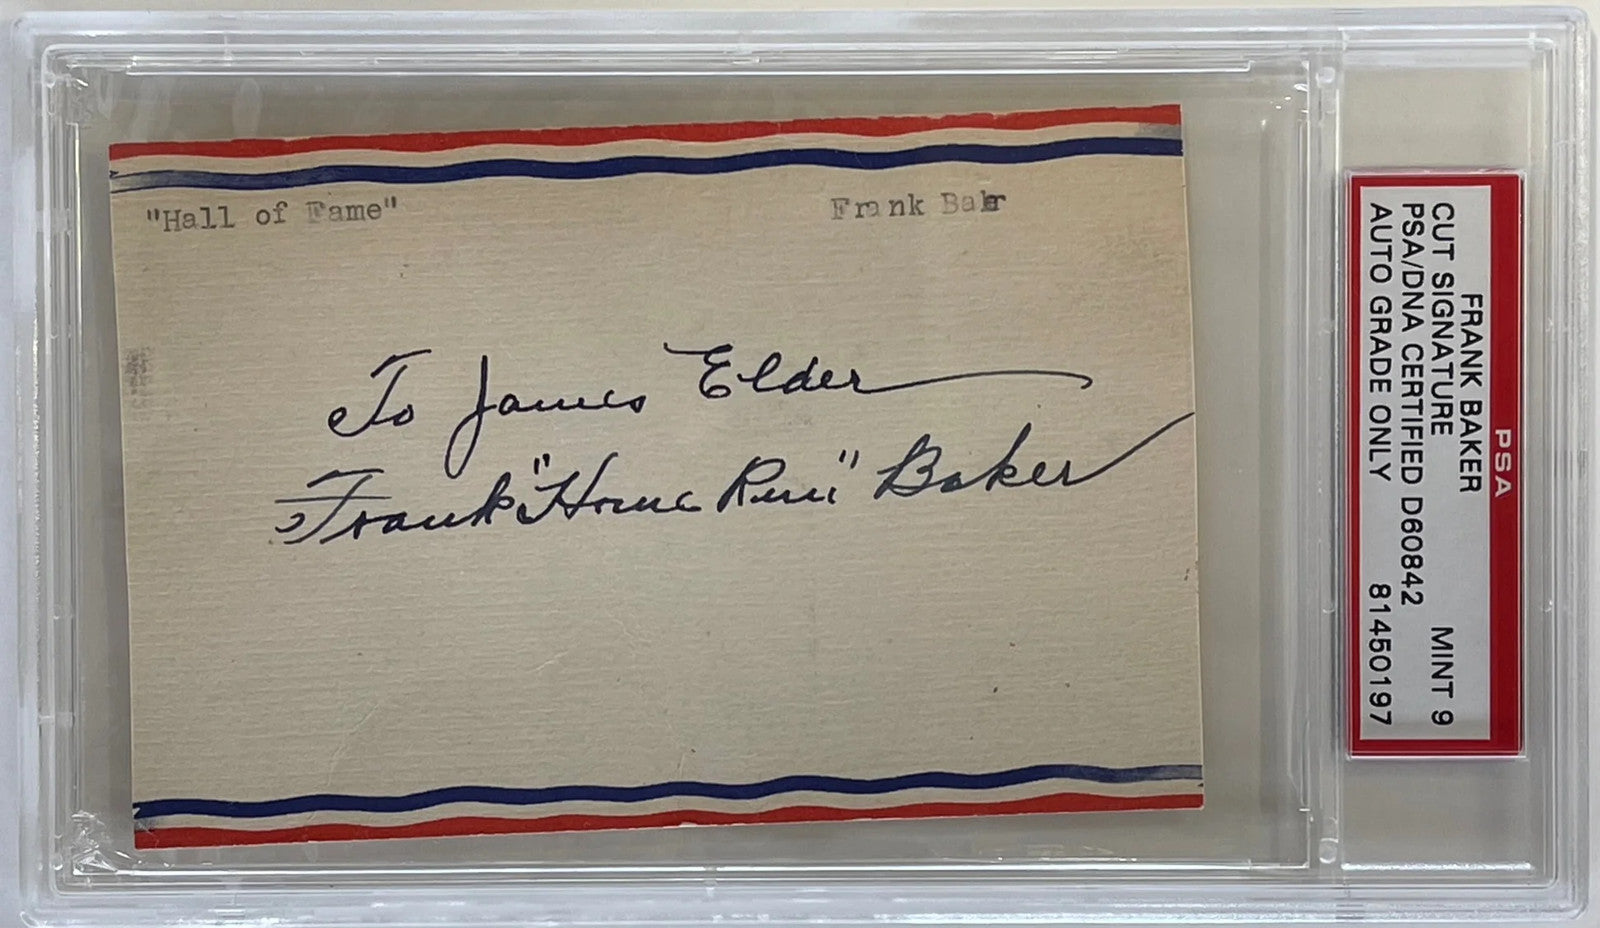 "Hall of Fame" Frank Baker
To James Elder
Frank "Home Run" Baker
PSA
FRANK BAKER
CUT SIGNATURE MINT 9
PSA/DNA CERTIFIED D60842
AUTO GRADE ONLY 81450197